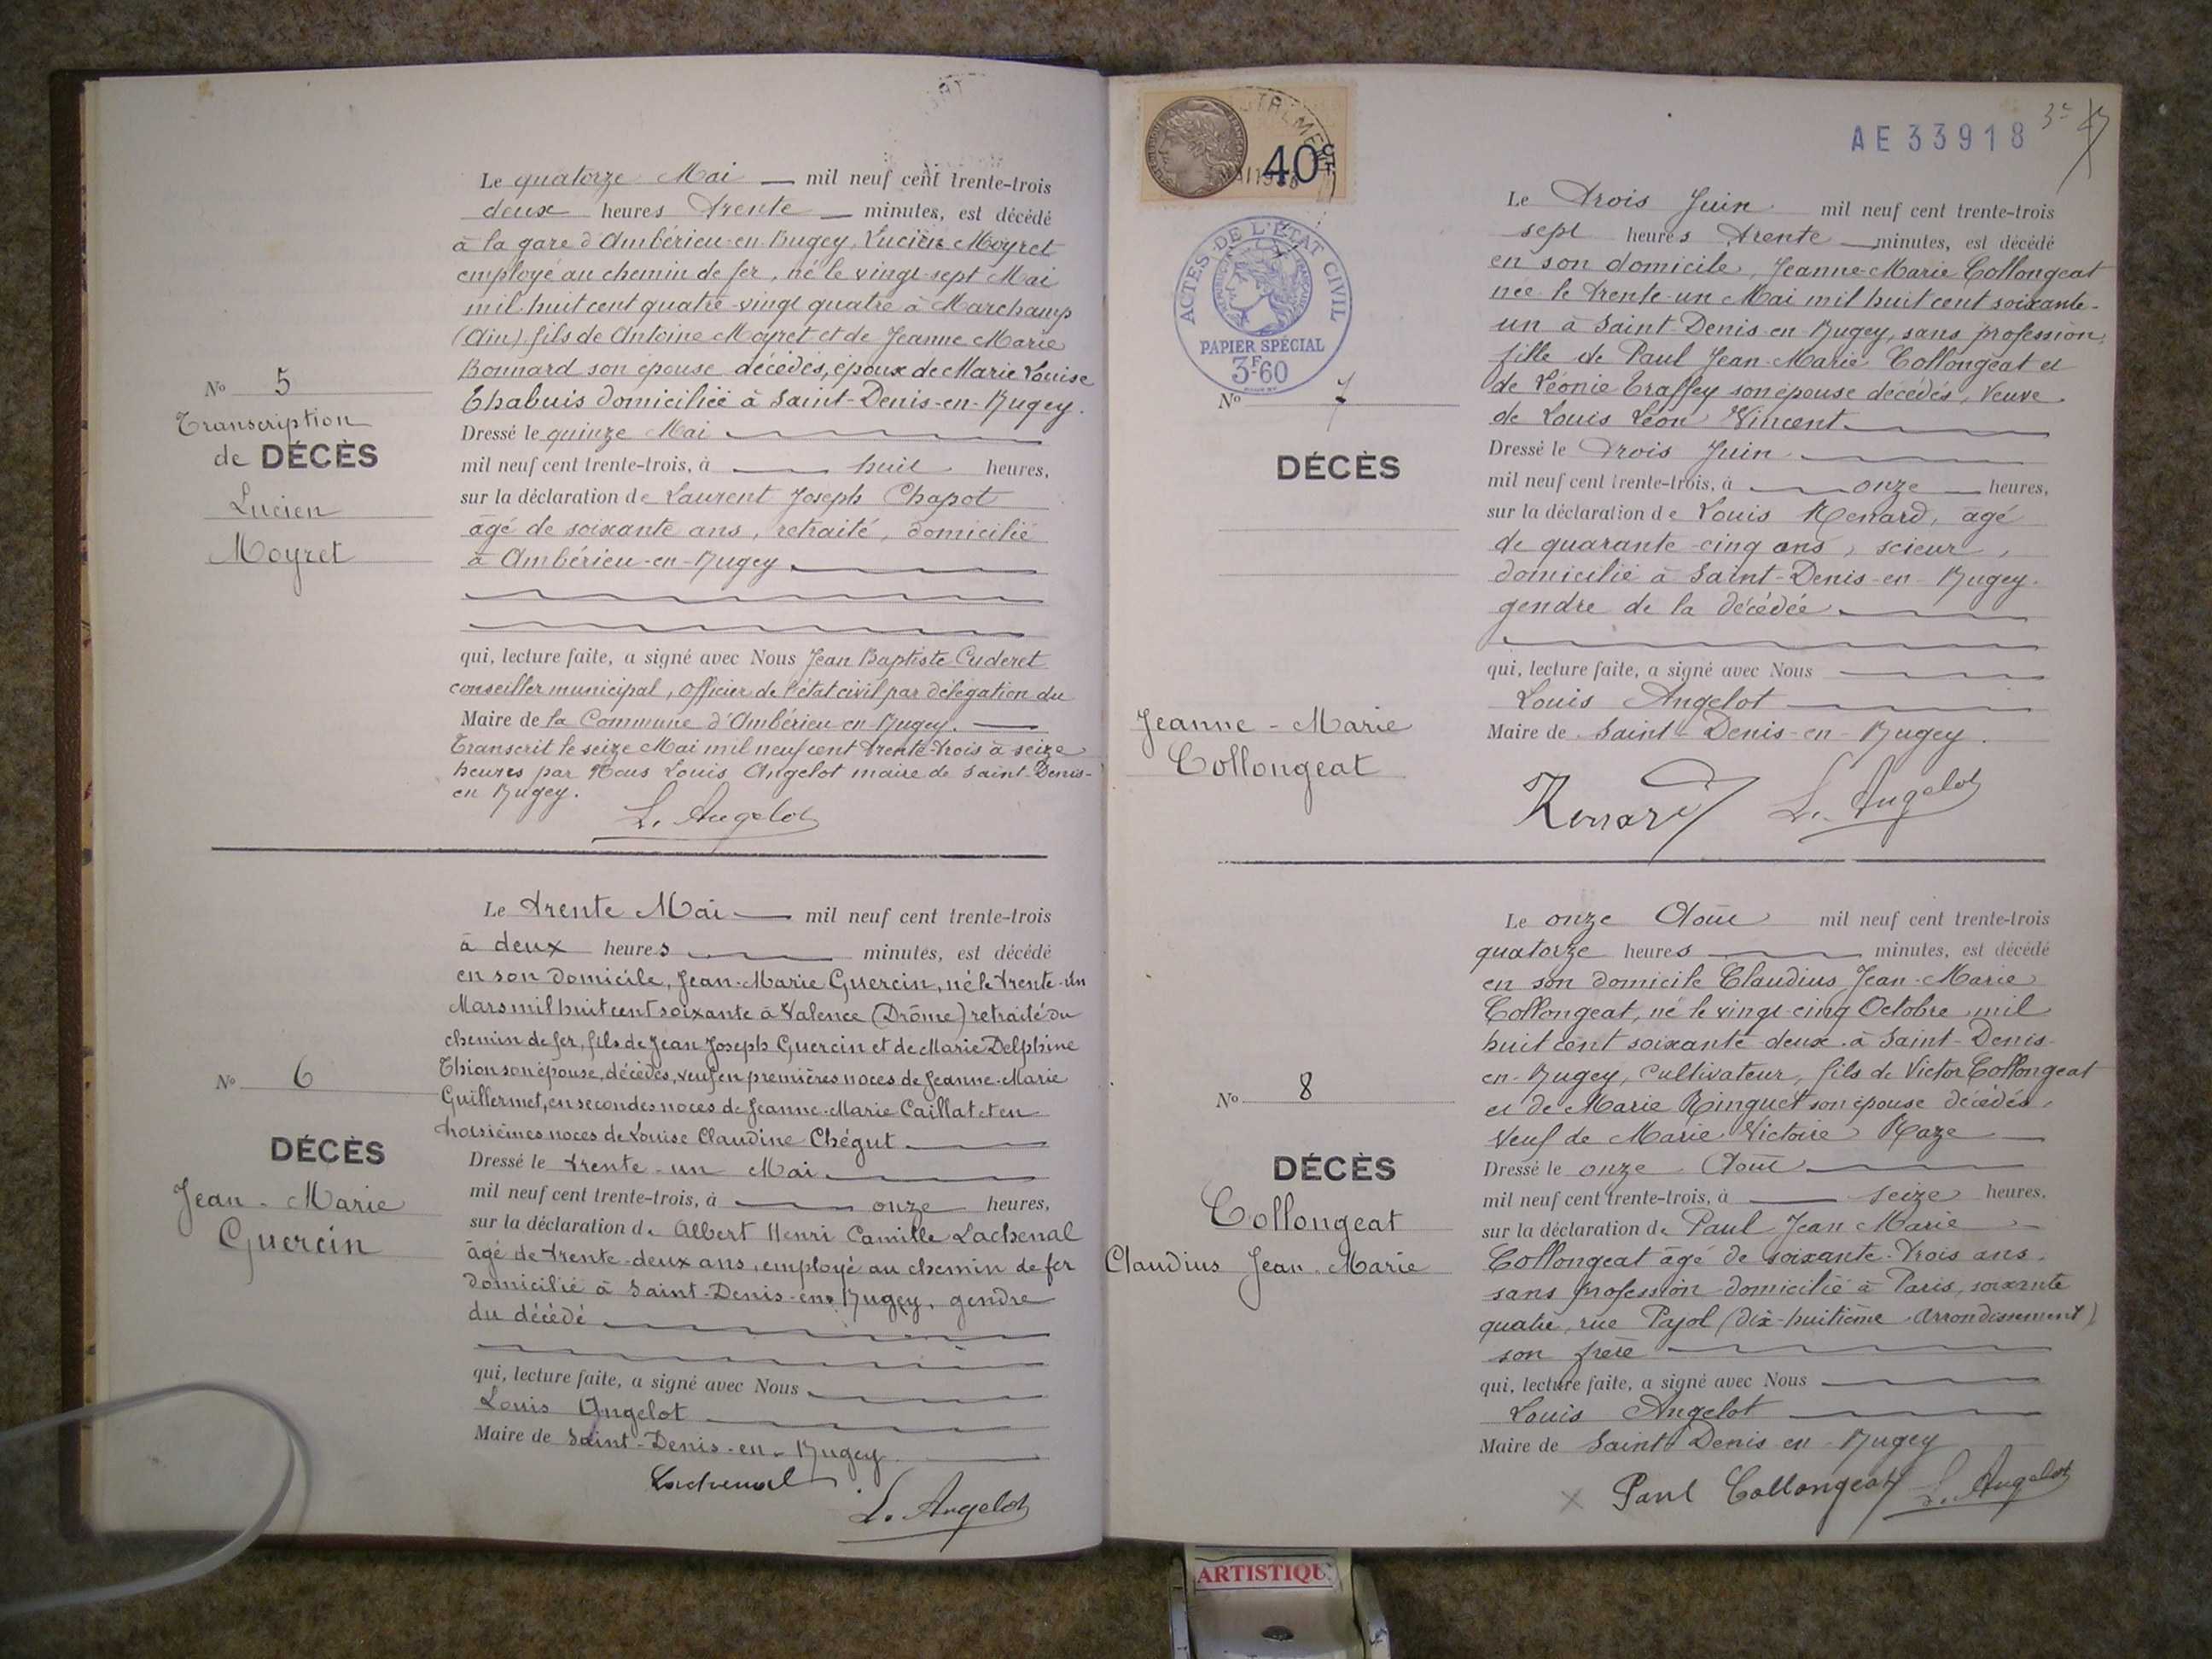 Le quatorze Mai mil neuf cent trente-trois
deux heures trente minutes, est décédé
à la gare d'Ambérieu-en-Bugey, Lucien Moyret
employé au chemin de fer, né le vingt-sept Mai
mil huit cent quatre-vingt quatre à Marchamp
(Ain) fils de Antoine Moyret et de Jeanne Marie
Bonnard son épouse décédés, époux de Marie Louise
Chabuis domiciliée à Saint-Denis-en-Bugey.
Dressé le quinze Mai
mil neuf cent trente-trois, à huit heures,
sur la déclaration de Laurent Joseph Chapot
âgé de soixante ans, retraité, domicilié
à Ambérieu-en-Bugey
qui, lecture faite, a signé avec Nous Jean Baptiste Cuderet
conseiller municipal, officier de l'état civil par délégation du
Maire de la Commune d'Ambérieu-en-Bugey.
Transcrit le seize Mai mil neuf cent trente-trois à seize
heures par Nous Louis Angelot maire de Saint-Denis-
en Bugey.
L. Angelot
No 5
Transcription
de DÉCÈS
Lucien
Moyret
Le trente Mai mil neuf cent trente-trois
à deux heures minutes, est décédé
en son domicile, Jean-Marie Guercin, né le trente-un
Mars mil huit cent soixante à Valence (Drôme) retraité du
chemin de fer, fils de Jean Joseph Guercin et de Marie Delphine
Thion son épouse, décédés, veuf en premières noces de Jeanne-Marie
Guillermet, en secondes noces de Jeanne-Marie Caillat et en
troisièmes noces de Louise Claudine Chégut
Dressé le trente-un Mai
mil neuf cent trente-trois, à onze heures,
sur la déclaration de Albert Henri Camille Lachenal
âgé de trente-deux ans, employé au chemin de fer
domicilié à Saint-Denis-en-Bugey, gendre
du décédé
qui, lecture faite, a signé avec Nous
Louis Angelot
Maire de Saint-Denis-en-Bugey
Lachenal
L. Angelot
No 6
DÉCÈS
Jean-Marie
Guercin
40 c
AE 33918
ACTES DE L'ÉTAT CIVIL
PAPIER SPÉCIAL
3F60
Le trois Juin mil neuf cent trente-trois
sept heures trente minutes, est décédé
en son domicile, Jeanne-Marie Collongeat
née le trente-un Mai mil huit cent soixante-
un à Saint-Denis-en-Bugey, sans profession,
fille de Paul Jean-Marie Collongeat et
de Léonie Traffey son épouse décédés, Veuve
de Louis Léon Vincent
Dressé le trois Juin
mil neuf cent trente-trois, à onze heures,
sur la déclaration de Louis Renard, âgé
de quarante-cinq ans, scieur,
domicilié à Saint-Denis-en-Bugey.
gendre de la décédée
qui, lecture faite, a signé avec Nous
Louis Angelot
Maire de Saint-Denis-en-Bugey.
Renard L. Angelot
No 7
DÉCÈS
Jeanne-Marie
Collongeat
Le onze Août mil neuf cent trente-trois
quatorze heures minutes, est décédé
en son domicile Claudius Jean-Marie
Collongeat, né le vingt-cinq Octobre mil
huit cent soixante-deux à Saint-Denis-
en-Bugey, cultivateur, fils de Victor Collongeat
et de Marie Ringuet son épouse décédés,
Veuf de Marie Victoire Raze
Dressé le onze Août
mil neuf cent trente-trois, à seize heures,
sur la déclaration de Paul Jean Marie
Collongeat âgé de soixante-trois ans,
sans profession domicilié à Paris, soixante
quatre, rue Pajol (dix-huitième Arrondissement)
son frère
qui, lecture faite, a signé avec Nous
Louis Angelot
Maire de Saint Denis en Bugey
Paul Collongeat L. Angelot
No 8
DÉCÈS
Collongeat
Claudius Jean-Marie
ARTISTIQU